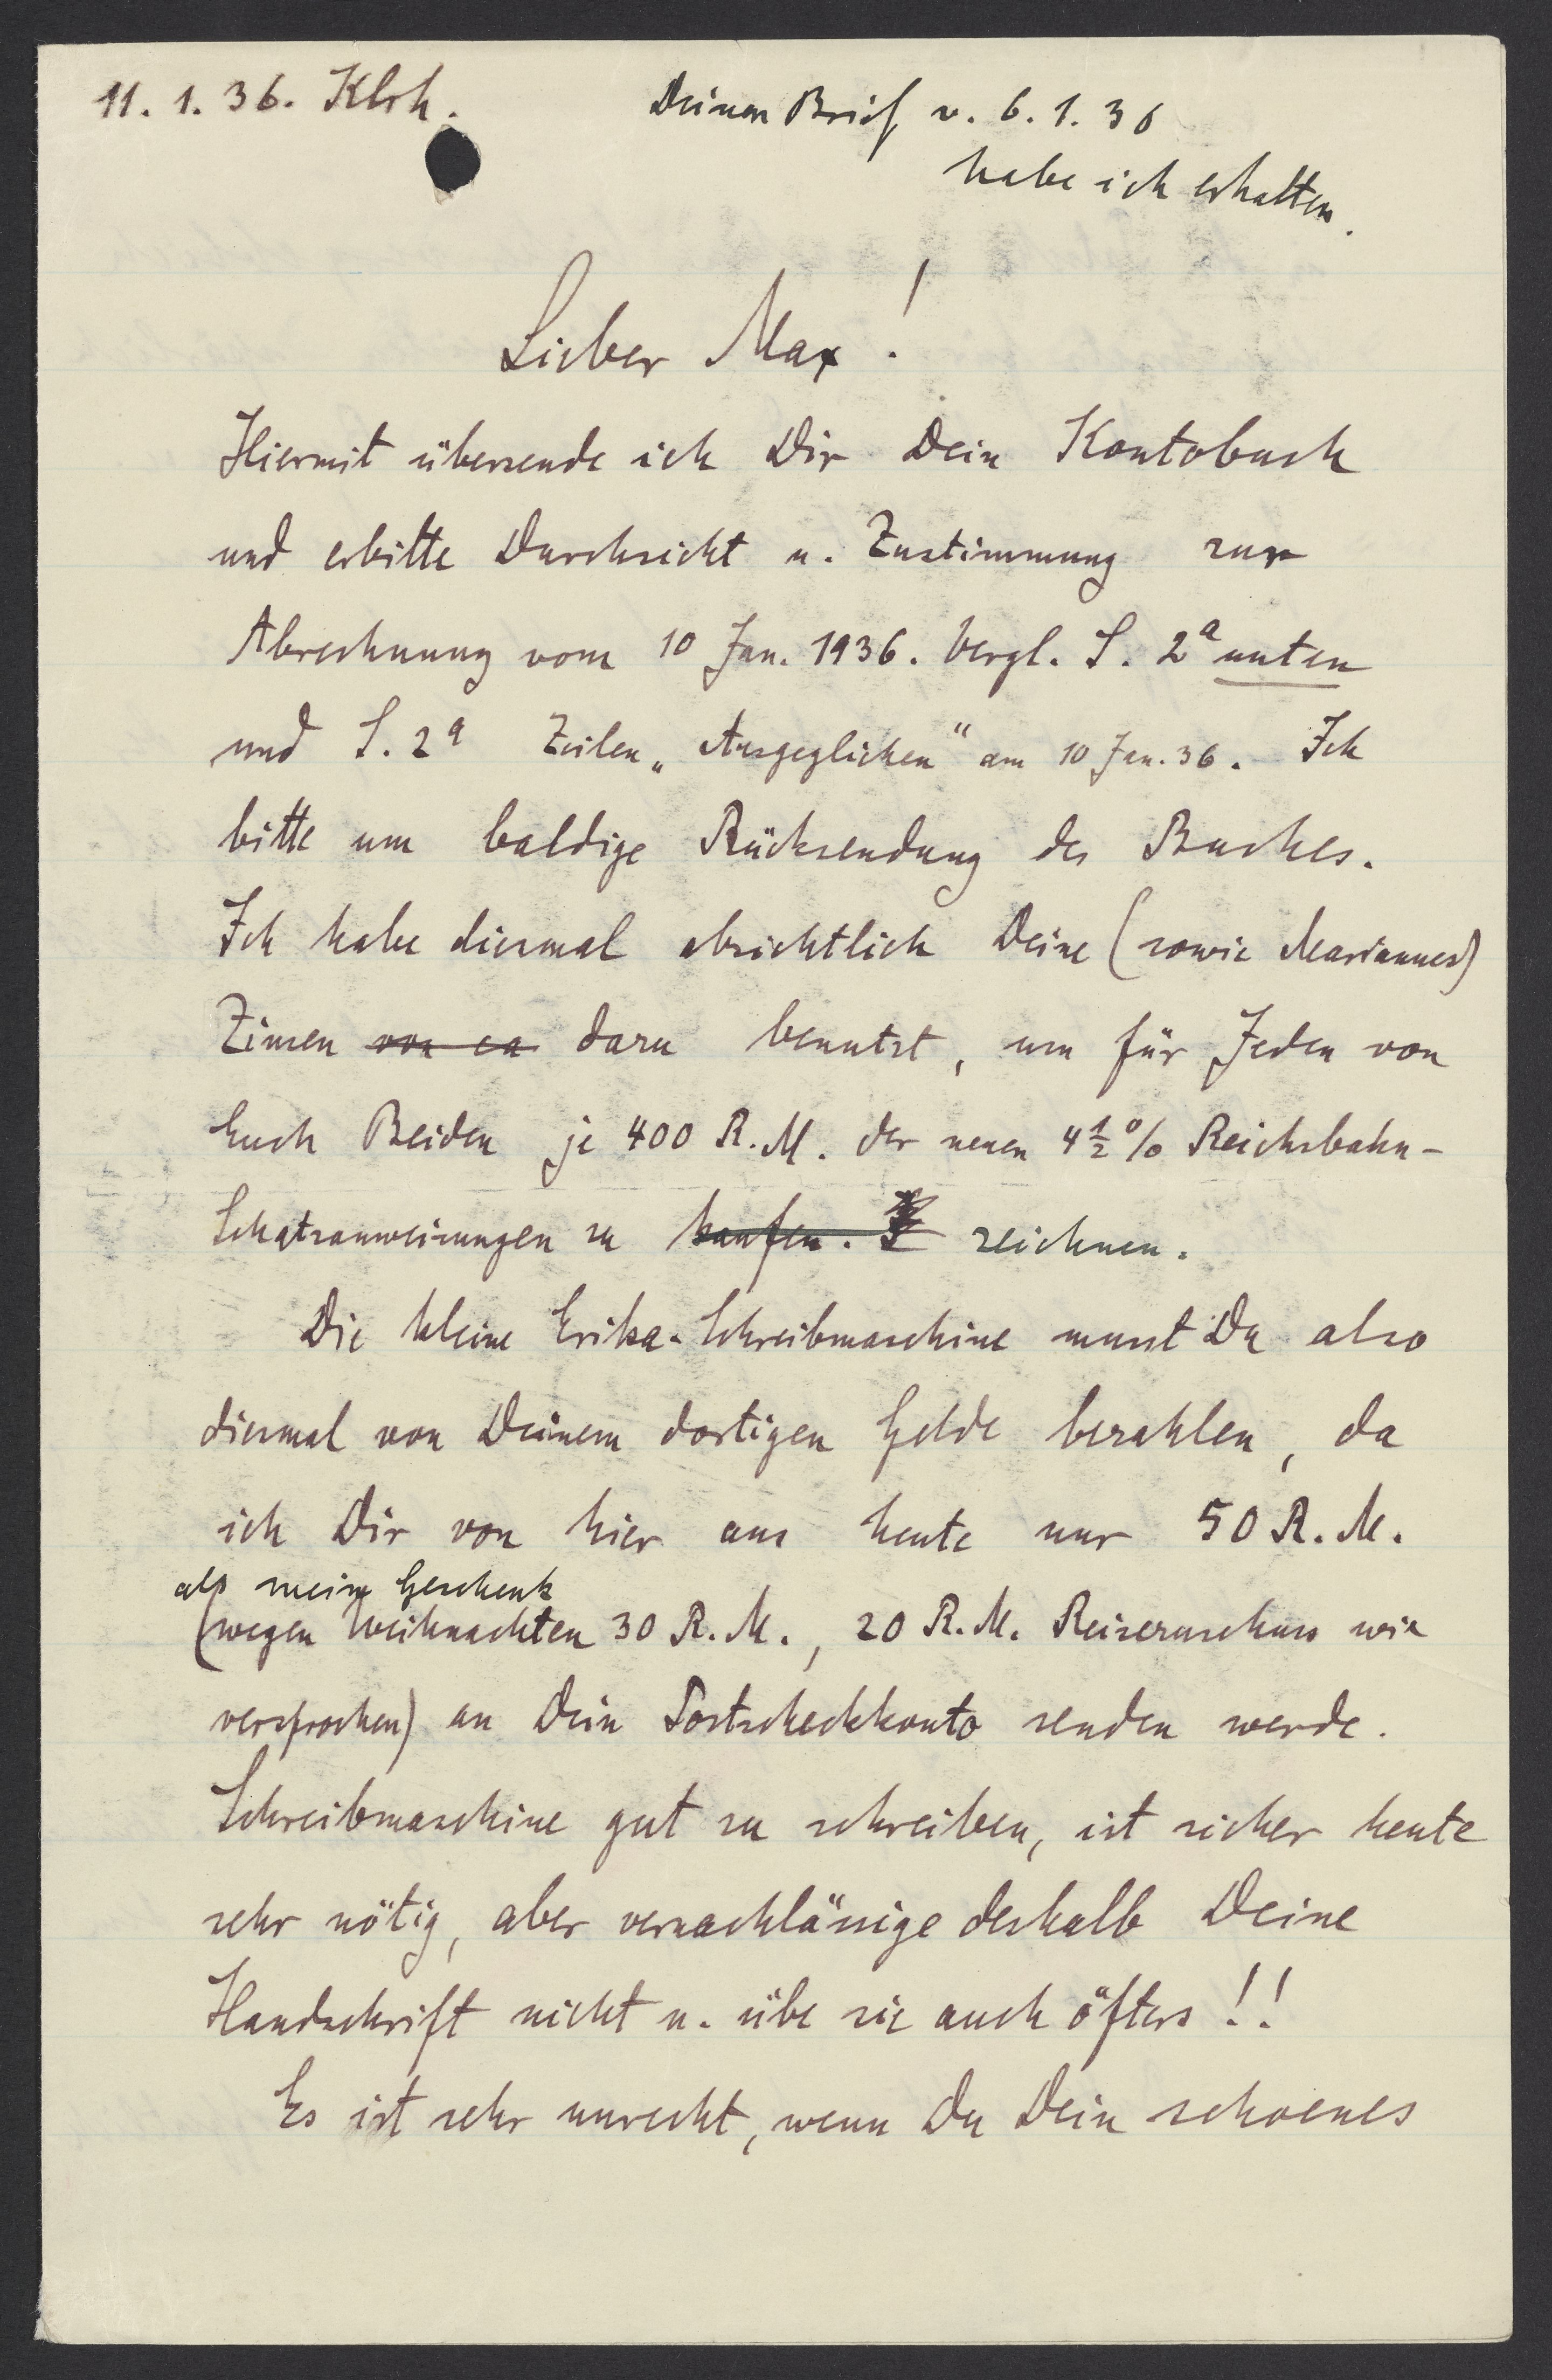 11. 1. 36. Klrh.
Deinen Brief v. 6. 1. 36
habe ich erhalten.
Lieber Max!
Hiermit übersende ich Dir Dein Kontobuch
und erbitte Durchsicht u. Zustimmung zur
Abrechnung vom 10 Jan. 1936. Vergl. S. 2a unten
und S. 2a Zeilen „Ausgeglichen“ am 10 Jan. 36. Ich
bitte um baldige Rücksendung des Buches.
Ich habe diesmal absichtlich Deine (sowie Mariannes)
Zinsen von ca dazu benutzt, um für Jeden von
Euch Beiden je 400 R. M. der neuen 4 1/2 % Reichsbahn-
Schatzanweisungen zu kaufen. I zeichnen.
Die kleine Erika-Schreibmaschine musst Du also
diesmal von Deinem dortigen Gelde bezahlen, da
ich Dir von hier aus heute nur 50 R. M.
als mein Geschenk
(wegen Weihnachten 30 R. M., 20 R. M. Reisezuschuss wie
versprochen) an Dein Postscheckkonto senden werde.
Schreibmaschine gut zu schreiben, ist sicher heute
sehr nötig, aber vernachlässige deshalb Deine
Handschrift nicht u. übe sie auch öfters!!
Es ist sehr unrecht, wenn Du Dein schoenes